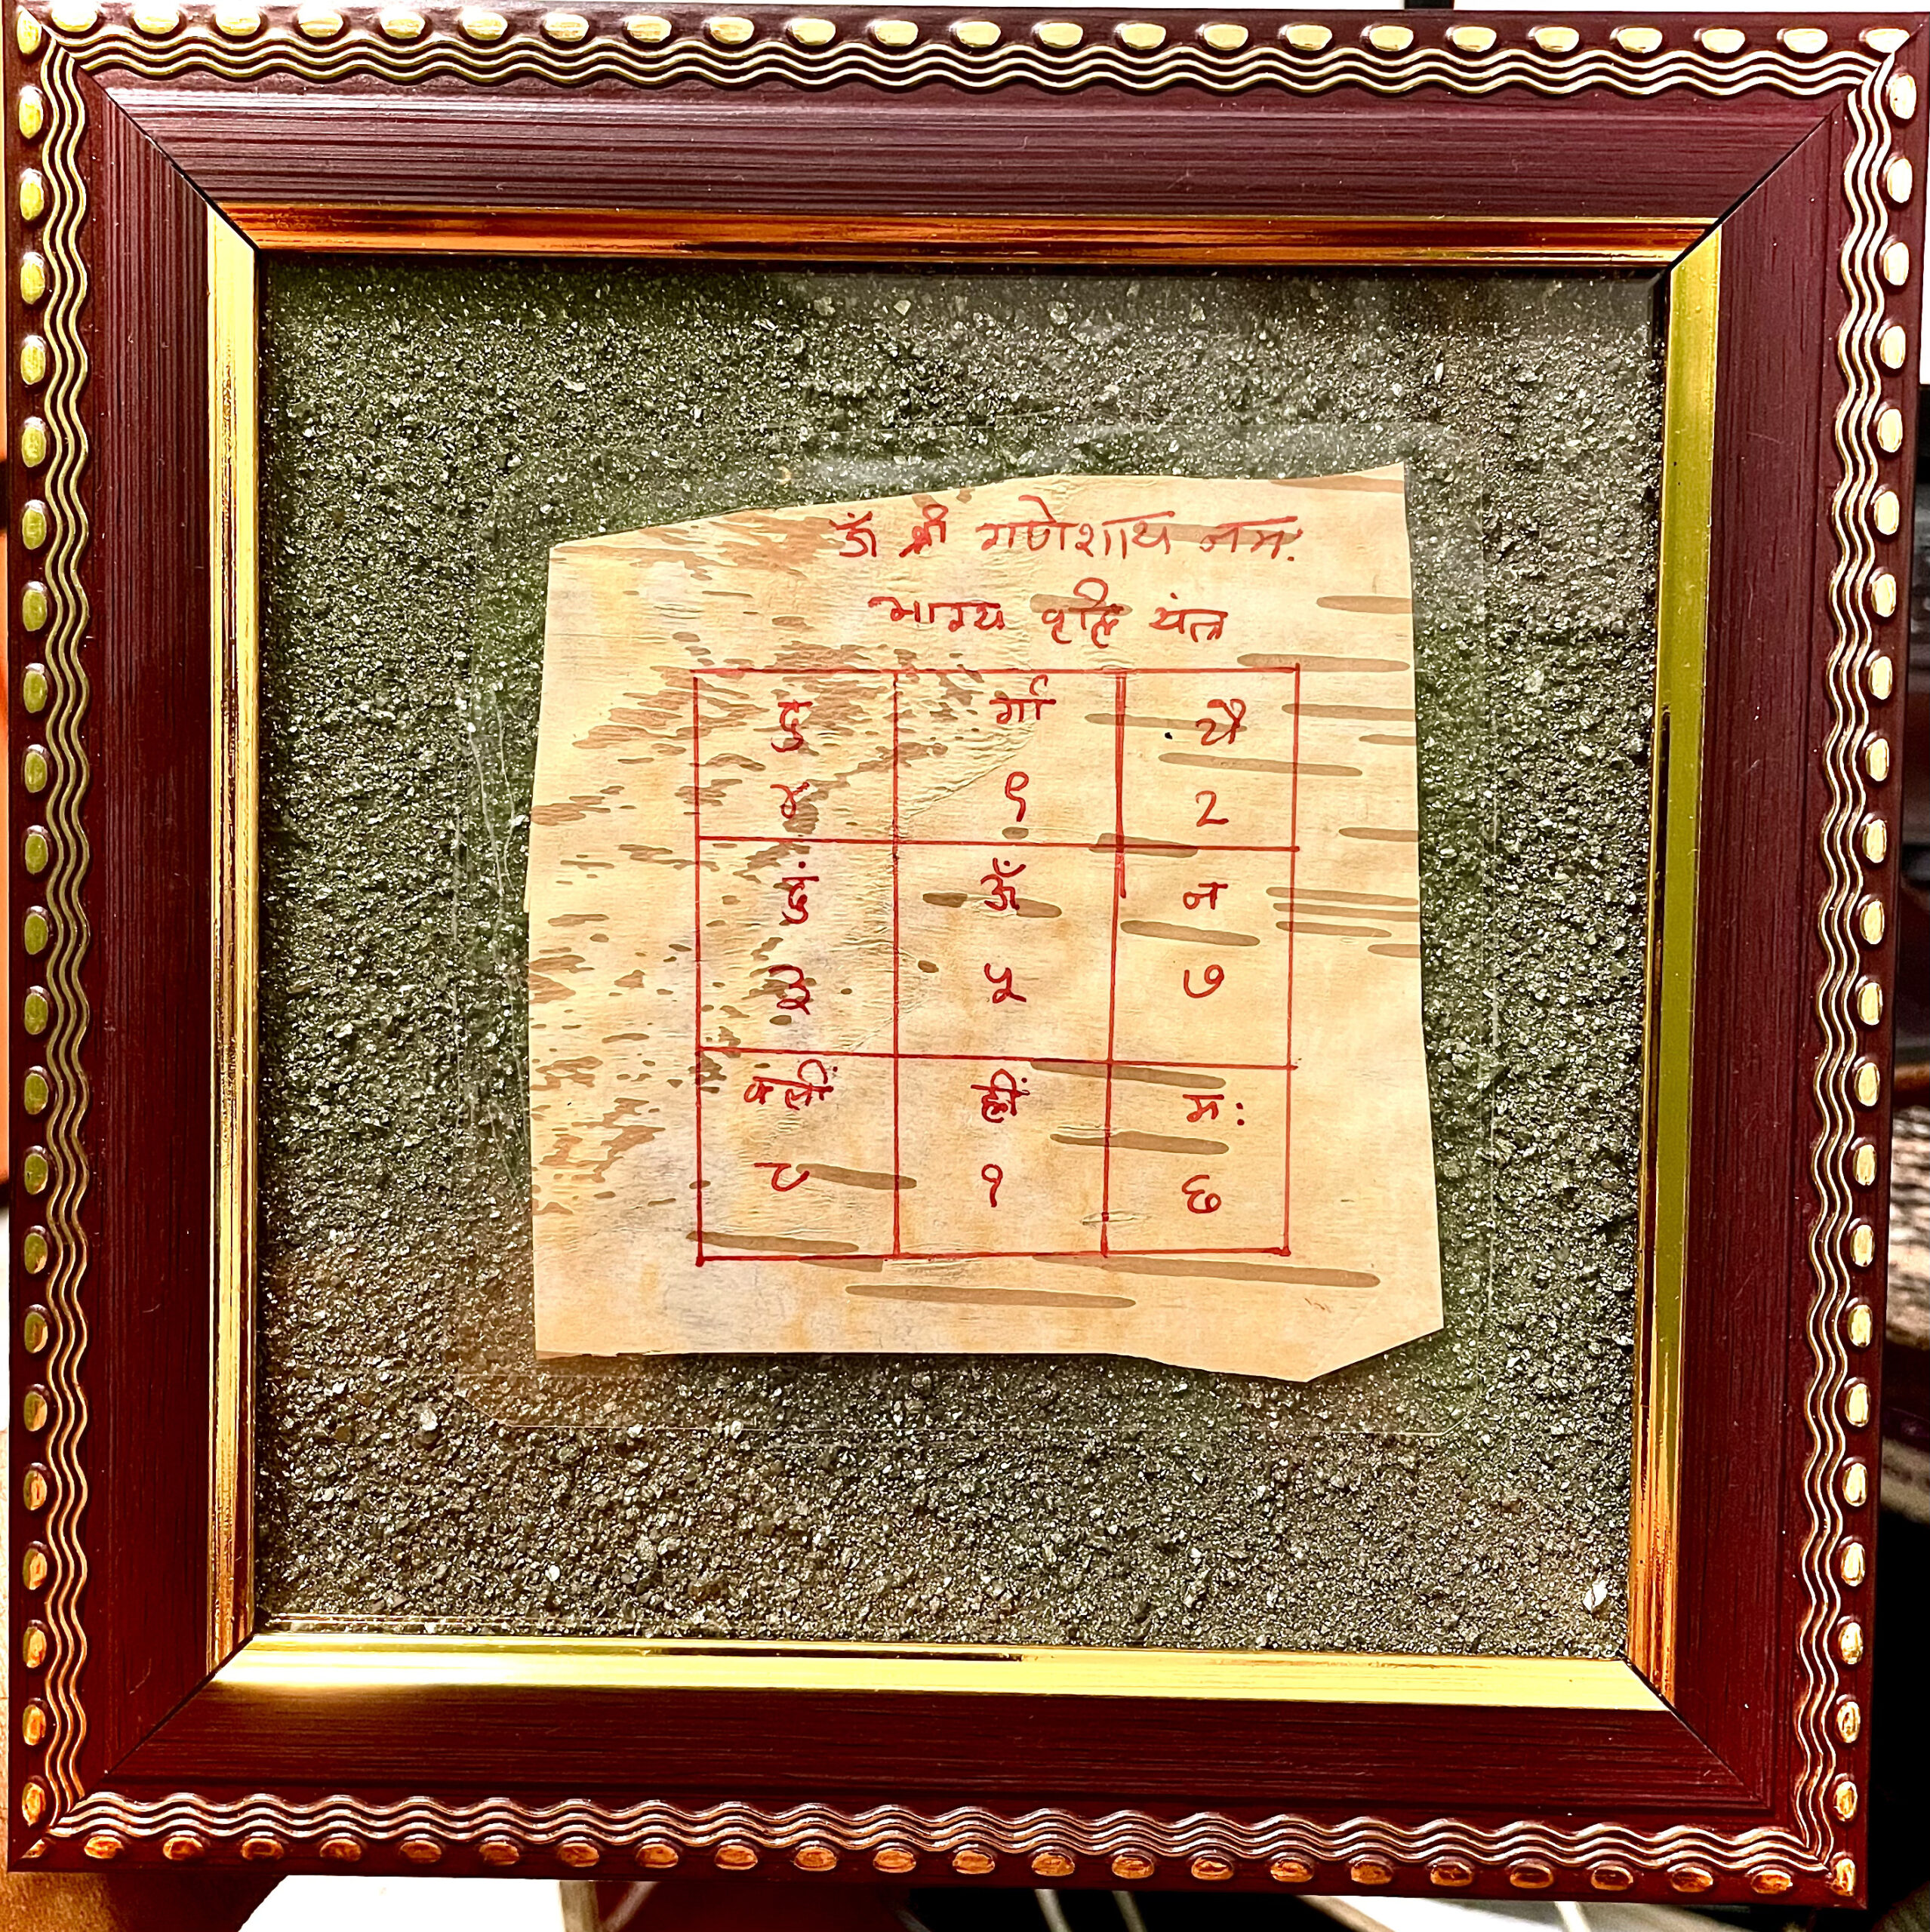 ॐ श्री गणेशाय नमः
भाग्य वृद्धि यंत्र
दु र्गा यै
४ ९ 2
दुं ॐ न
३ ५ ७
क्लीं ह्रीं मः
८ १ ६